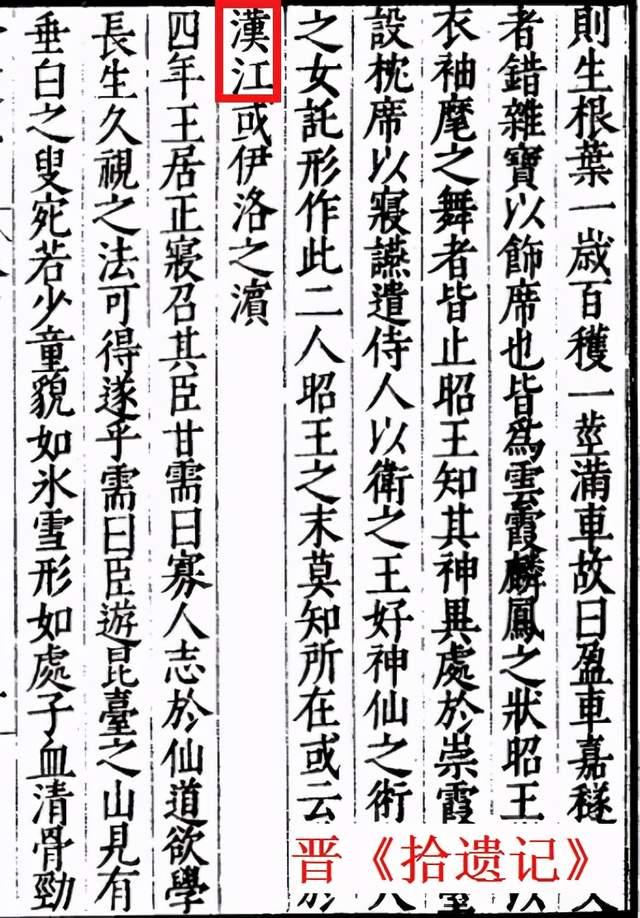 則生根葉一歲百穫一莖滿車故曰盈車嘉穟
者錯雜寶以飾席也皆爲雲霞麟鳳之狀昭王
衣袖麾之舞者皆止昭王知其神異處於崇霞
設枕席以寢讌遣侍人以衛之王好神仙之術
之女託形作此二人昭王之末莫知所在或云
漢江或伊洛之濱
四年王居正寢召其臣甘需曰寡人志於仙道欲學
長生久視之法可得遂乎需曰臣遊昆臺之山見有
垂白之叟宛若少童貌如氷雪形如處子血清骨勁
晋《拾遗记》